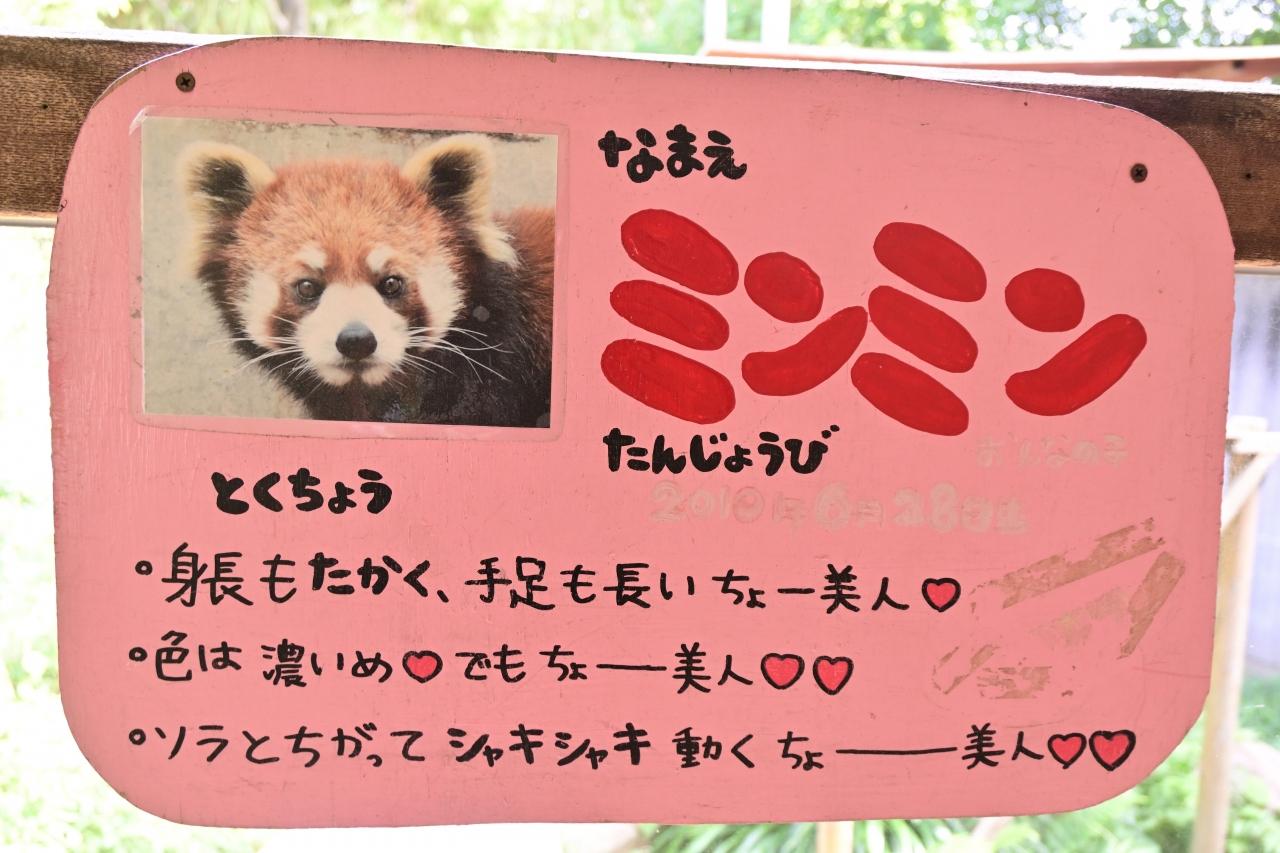 なまえ
ミンミン
たんじょうび
おんなの子
2010年6月28日生
とくちょう
°身長もたかく、手足も長いちょー美人♡
°色は濃いめ♡でもちょ――美人♡♡
°ソラとちがってシャキシャキ動くちょ―――美人♡♡